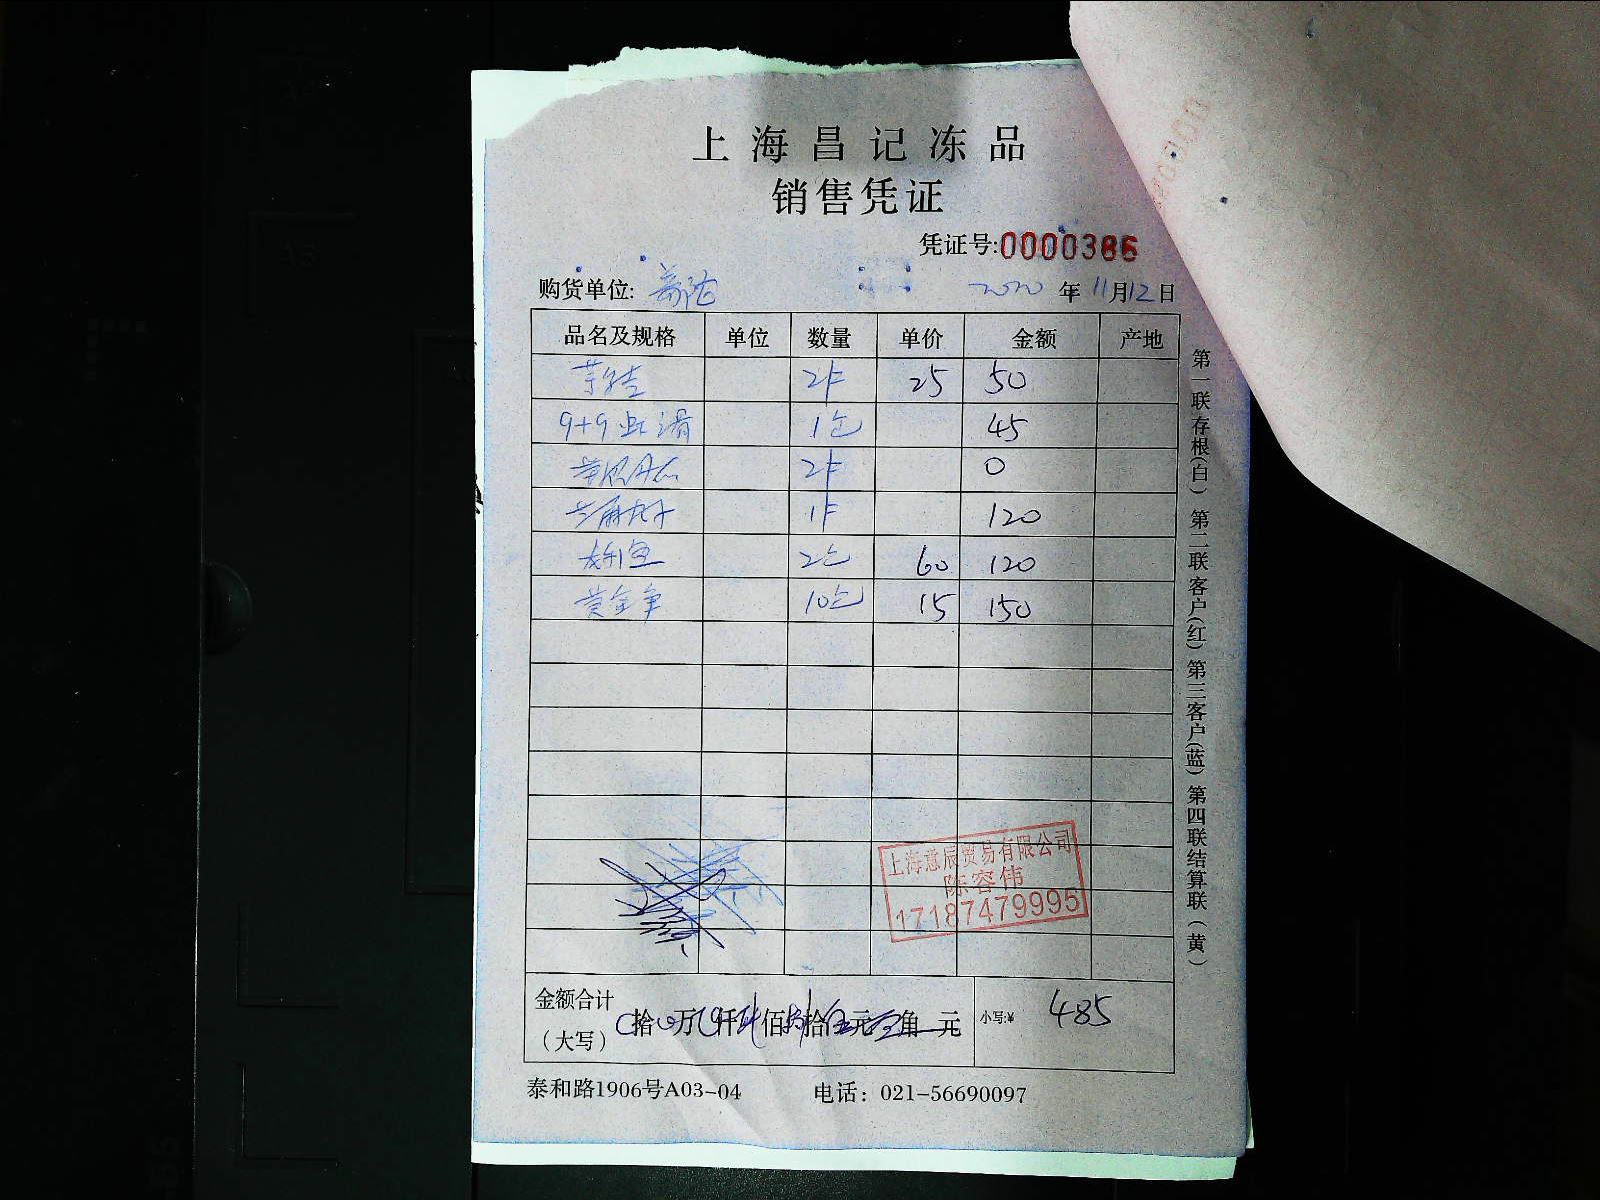 上海昌记冻品
销售凭证
凭证号:0000386
购货单位: 2020年11月12日
品名及规格 单位 数量 单价 金额 产地
2件 25 50
9+9虾滑 1包 45
2件 0
1件 120
2包 60 120
黄金 10包 15 150
上海意辰贸易有限公司
陈容伟
17187479995
金额合计
(大写) 拾 万 仟 佰 拾 元 角 元 小写:¥ 485
泰和路1906号A03-04 电话: 021-56690097
第一联存根(白) 第二联客户(红) 第三客户(蓝) 第四联结算联(黄)